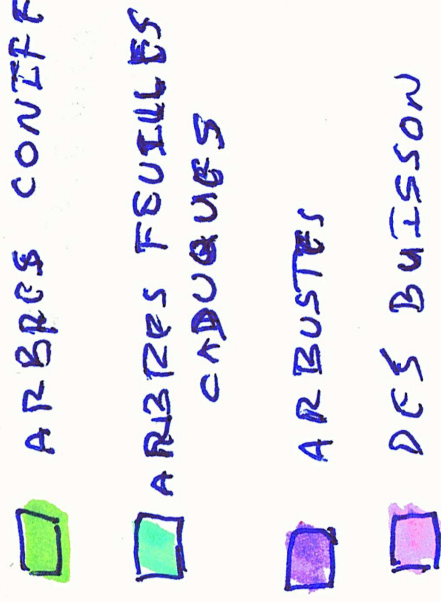 ARBRES CONIFF
ARBRES FEUILLES
CADUQUES
ARBUSTES
DES BUISSON